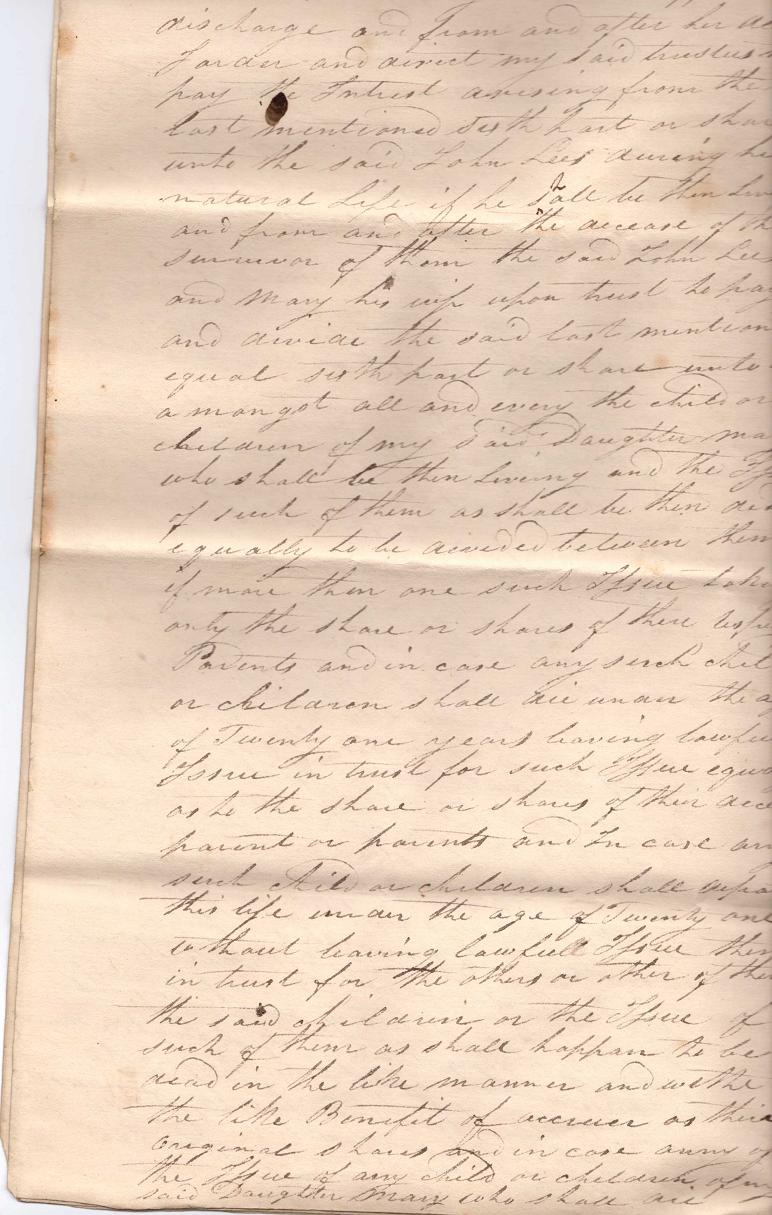 discharge and from and after her de
I order and direct my said trustees
pay the Intrest arising from the
last mentioned sixth part or shar
unto the said John Lees during his
natural Life if he shall be then Liv
and from and after the decease of th
survivor of them the said John Lees
and Mary his wife upon trust to pay
and divide the said last mention
equal sixth part or share unto
amongst all and every the child or
children of my said Daughter Ma
who shall be then Living and the Iss
of such of them as shall be then dea
equally to be divided between them
if more then one such Issue take
only the share or shares of there respe
Parents and in case any such chil
or children shall die under the a
of Twenty one years leaving lawfu
Issue in trust for such Issue equa
as to the share or shares of their dece
parent or parents and In case an
such child or children shall depa
this life under the age of Twenty one
without leaving lawfull Issue then
in trust for the others or other of the
the said children or the Issue of
such of them as shall happan to be
dead in the like manner and withe
the like Benefit of accruer as their
original shares and in case anny of
the Issue of any child or children of my
said Daughter Mary who shall die